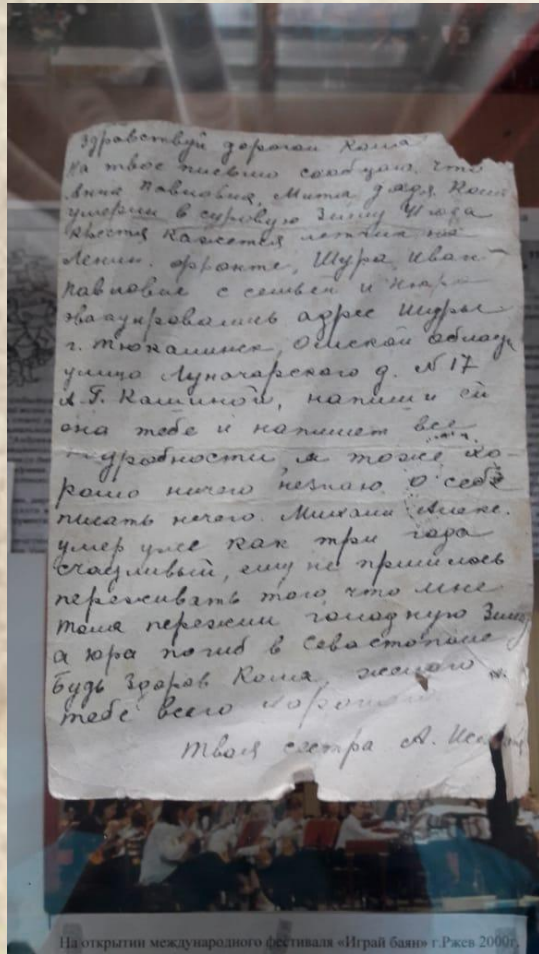 Здравствуй дорогой Коля
На твое письмо сообщаю, что
Анна Павловна, Митя, дядя Коля
умерли в суровую Зиму
кажется летчик на
Ленин. фронте, Шура, Иван
Павлович с семьей и Нюра
эвакуировались адрес Шуры
г. Тюкалинск, Омской области
улица Луначарского д. N 17
А. Г. Кашиной, напиши ей
она тебе и напишет все
подробности, я тоже хо-
рошо ничего незнаю. о себе
писать нечего. Михаил Алекс.
умер уже как три года
счасливый, ему не пришлось
переживать того, что мне
Толя пережили голодную Зиму
а Юра погиб в Севастополе
Будь Здоров Коля, желаю
тебе всего хорошего
твоя сестра А.
На открытии международного фестиваля «Играй баян» г.Ржев 2000г.